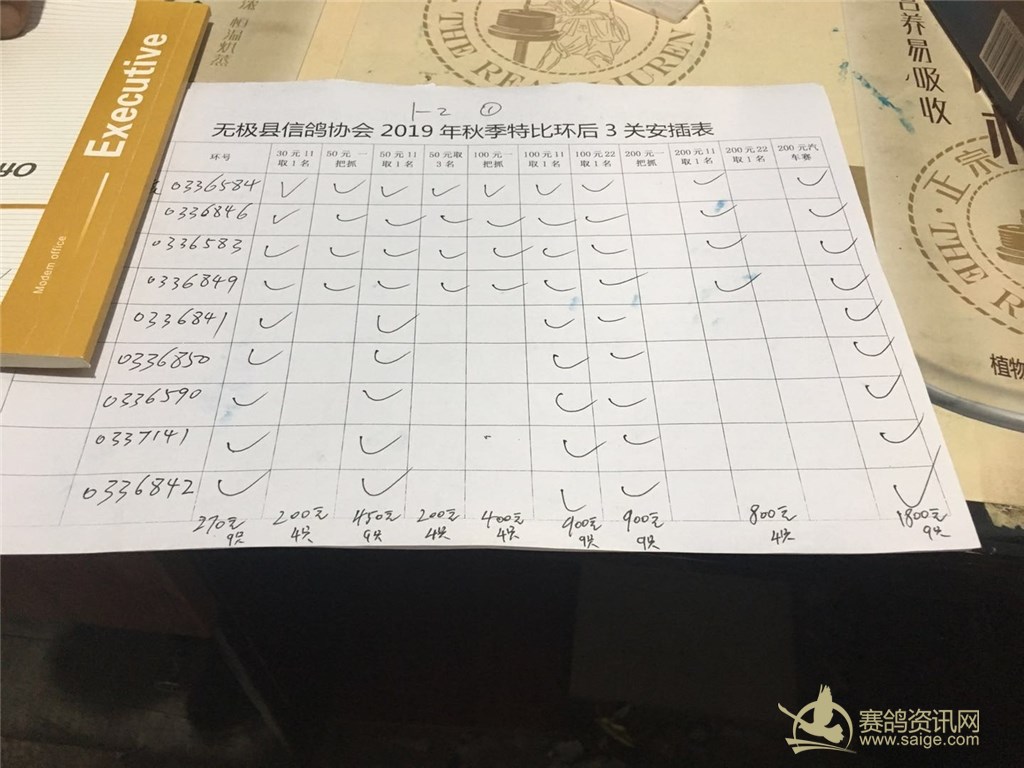 Executive
Modern office
THE RE
UREN
养易吸收
正宗
THE RE
植物
1-2 ①
无极县信鸽协会 2019 年秋季特比环后 3 关安插表
环号 30 元 11 取 1 名 50 元 一把抓 50 元 11 取 1 名 50 元取 3 名 100 元一把抓 100 元 11 取 1 名 100 元 22 取 1 名 200 元一把抓 200 元 11 取 1 名 200 元 22 取 1 名 200 元汽车赛
0336584 ✓ ✓ ✓ ✓ ✓ ✓ ✓ ✓ ✓
0336846 ✓ ✓ ✓ ✓ ✓ ✓ ✓ ✓ ✓
0336583 ✓ ✓ ✓ ✓ ✓ ✓ ✓ ✓ ✓
0336849 ✓ ✓ ✓ ✓ ✓ ✓ ✓ ✓ ✓
0336841 ✓ ✓ ✓ ✓ ✓
0336850 ✓ ✓ ✓ ✓ ✓
0336590 ✓ ✓ ✓ ✓ ✓
0337141 ✓ ✓ ✓ ✓ ✓
0336842 ✓ ✓ ✓ ✓ ✓
270元 200元 450元 200元 400元 900元 900元 800元 1800元
9只 4只 9只 4只 4只 9只 9只 4只 9只
赛鸽资讯网
www.saige.com